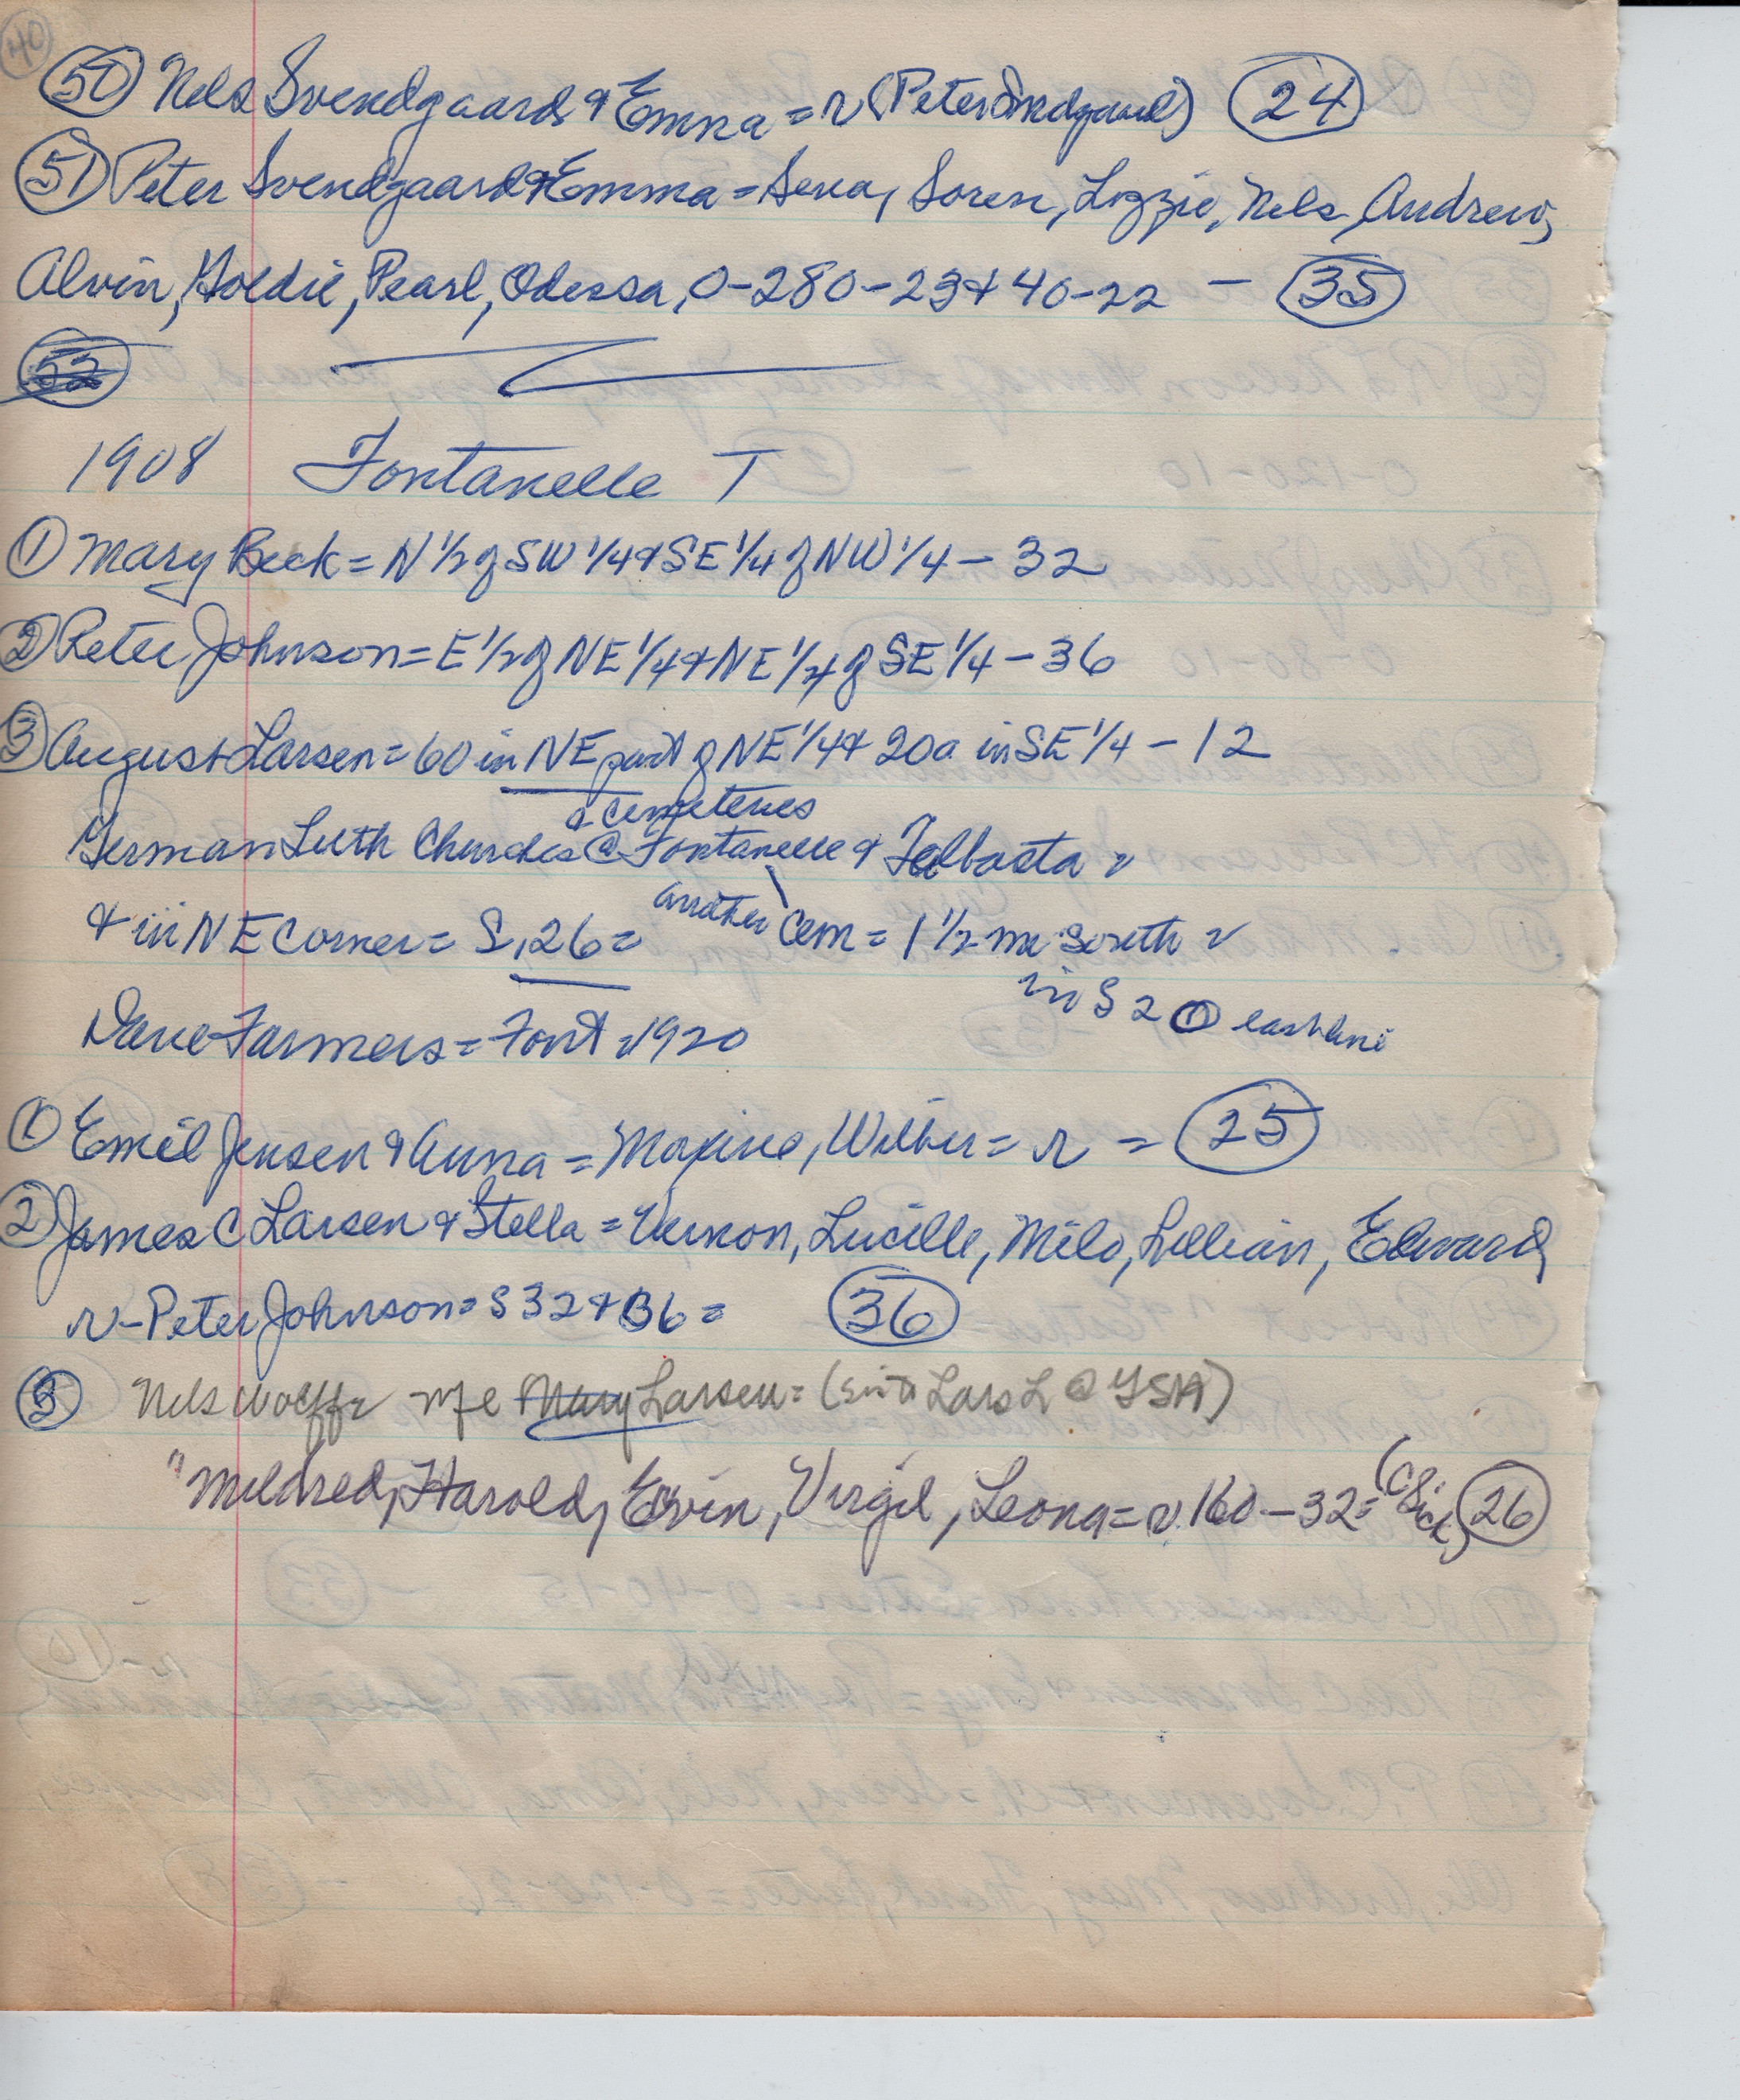 40
50 Nels Svendgaard & Emma = r (Peter Svendgaard) 24
51 Peter Svendgaard & Emma = Sena, Soren, Lizzie, Nels, Andrew,
Alvin, Goldie, Pearl, Odessa, 0-280-23 & 40-22 - 35
52
1908 Fontanelle T
1 Mary Beck = N 1/2 of SW 1/4 & SE 1/4 of NW 1/4 - 32
2 Peter Johnson = E 1/2 of NE 1/4 & NE 1/4 of SE 1/4 - 36
3 August Larsen = 60 in NE part of NE 1/4 & 20a in SE 1/4 - 12
& cemeteries
German Luth Churches @ Fontanelle & Telbasta
& in NE Corner = S, 26 = another Cem = 1 1/2 mi south
in S 20 east line
Dane Farmers = Font 1920
1 Emil Jensen & Anna = Maxine, Wilber = r = 25
2 James C Larsen & Stella = Vernon, Lucille, Milo, Lillian, Edward,
r - Peter Johnson = S 32 & 36 = 36
3 Nels Wolff Mary Larsen = (sis to Lars L @ YSA)
" Mildred, Harold, Ervin, Virgil, Leona = r. 160 - 32 = 26